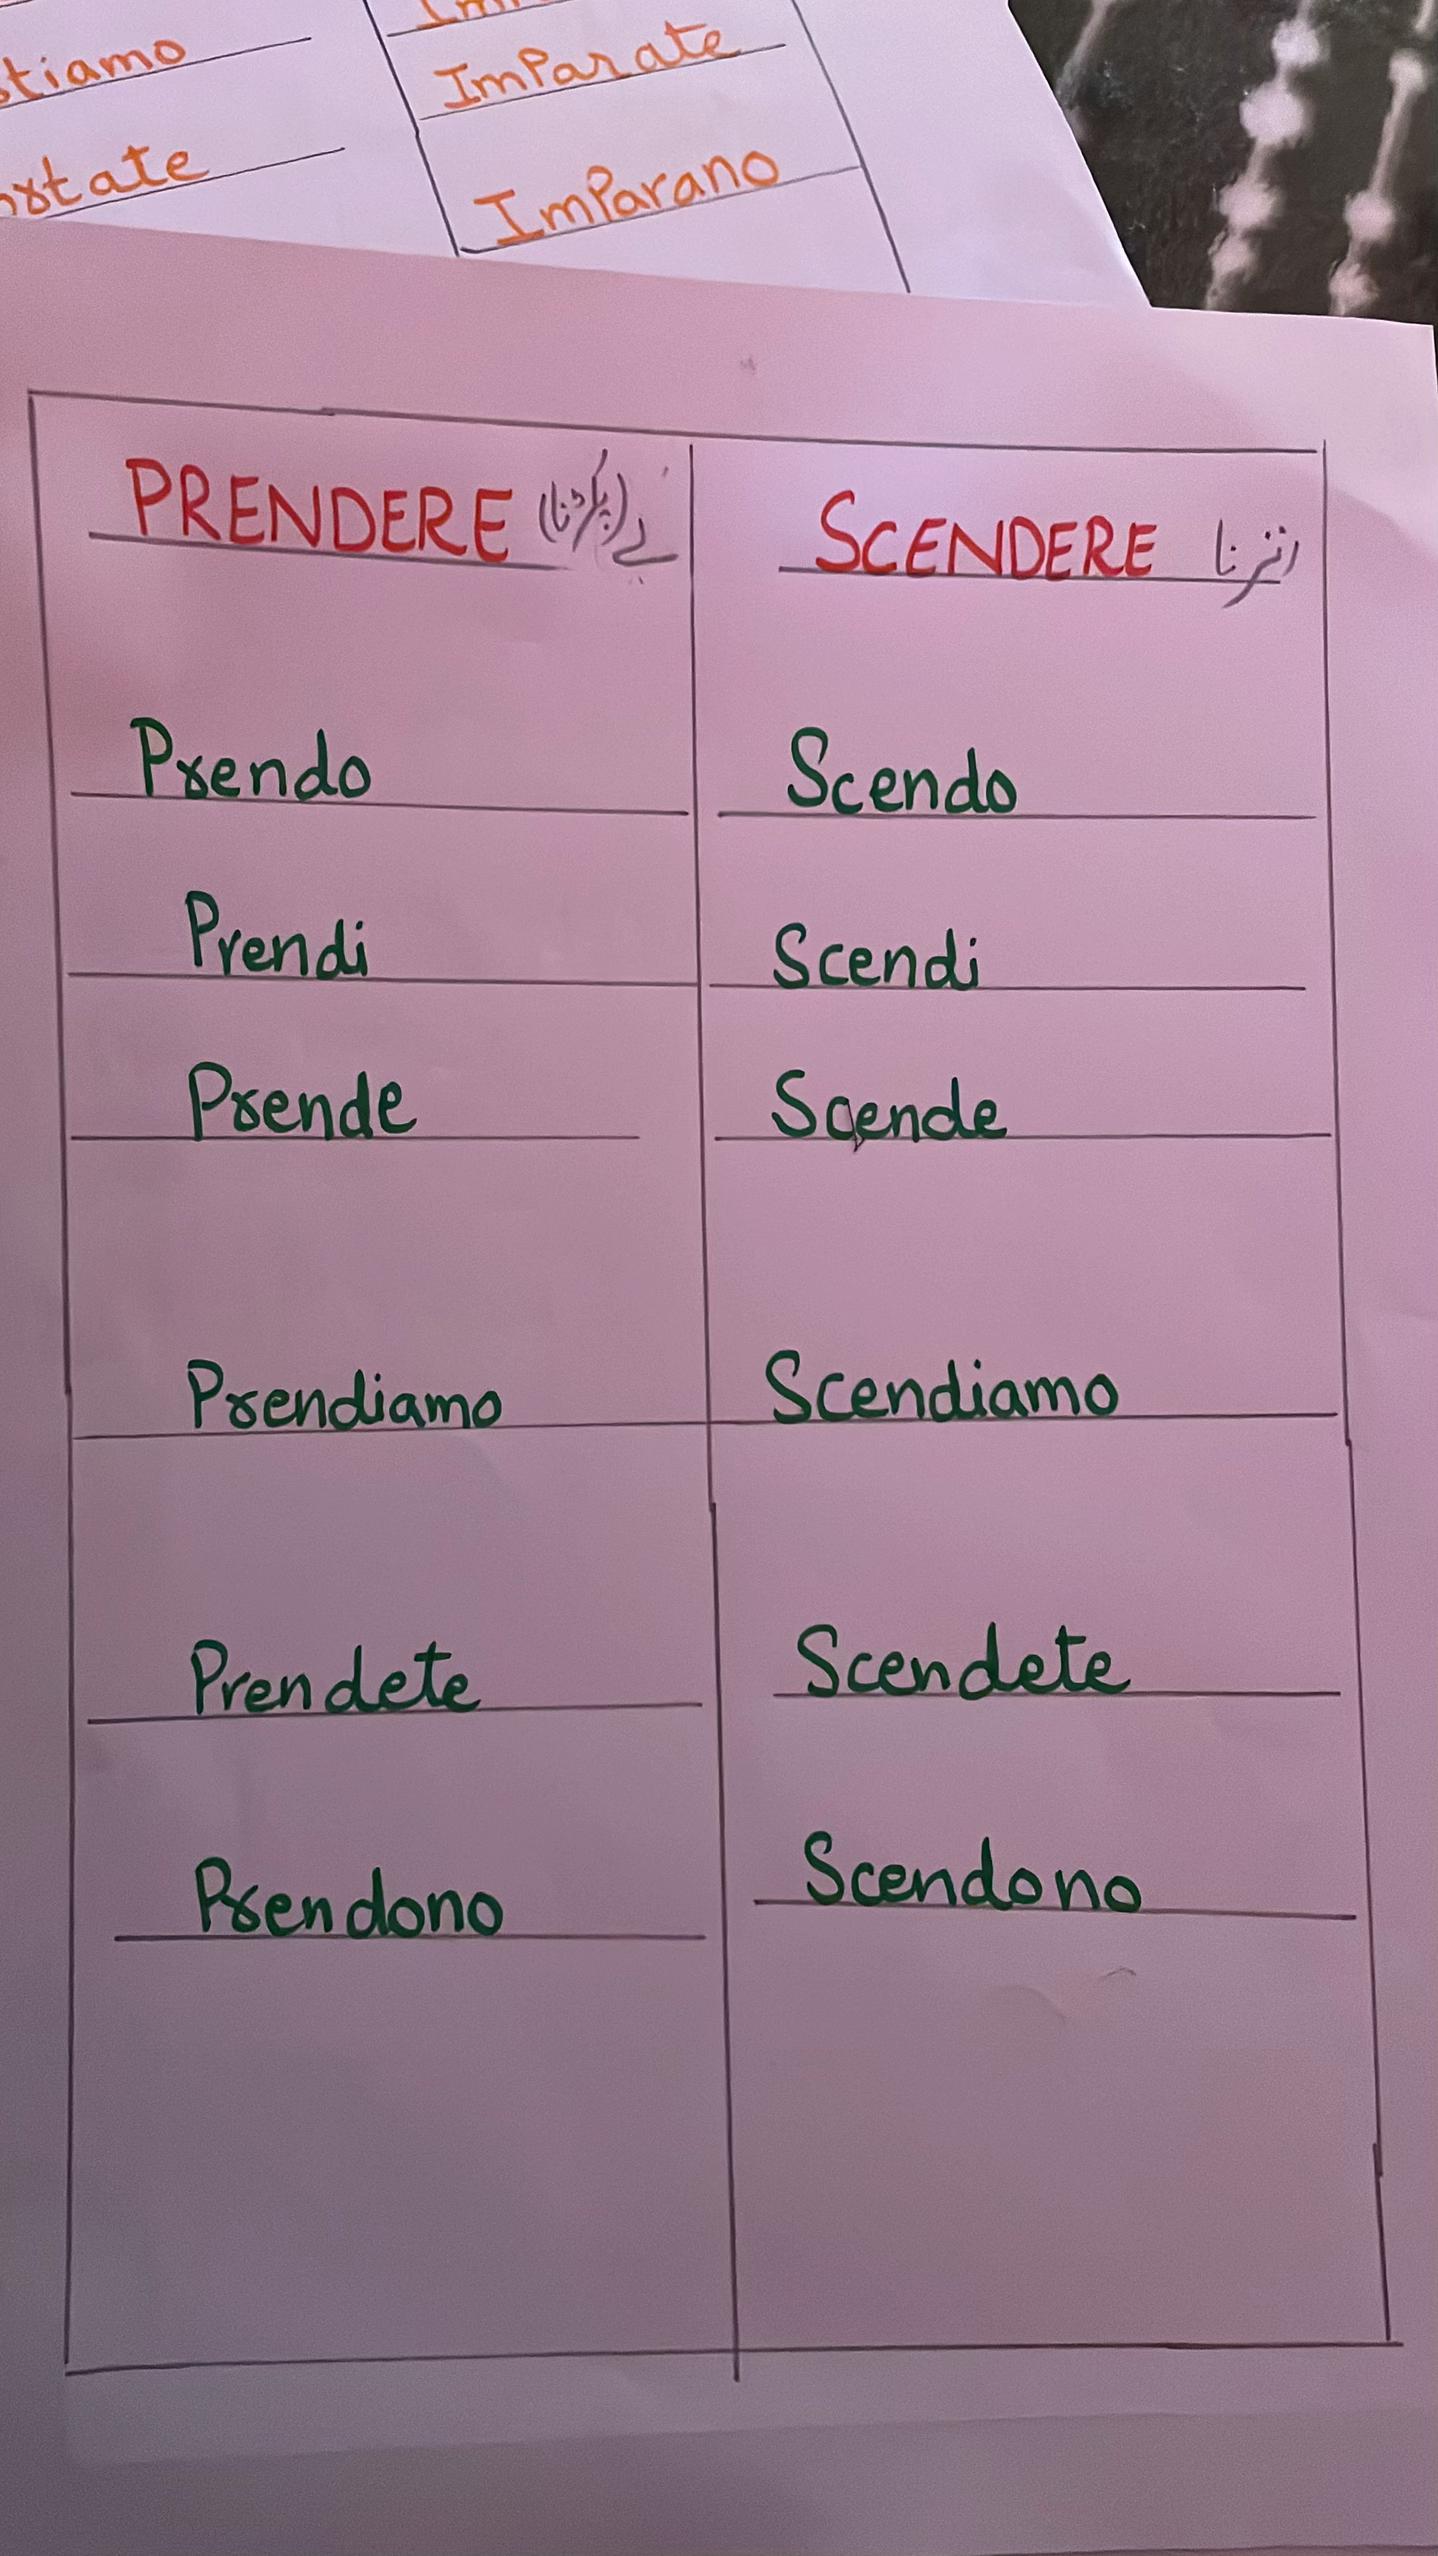 stiamo
Imparate
ortate
Imparano
PRENDERE (پکڑنا)
SCENDERE اترنا
Prendo
Scendo
Prendi
Scendi
Prende
Scende
Prendiamo
Scendiamo
Prendete
Scendete
Prendono
Scendono